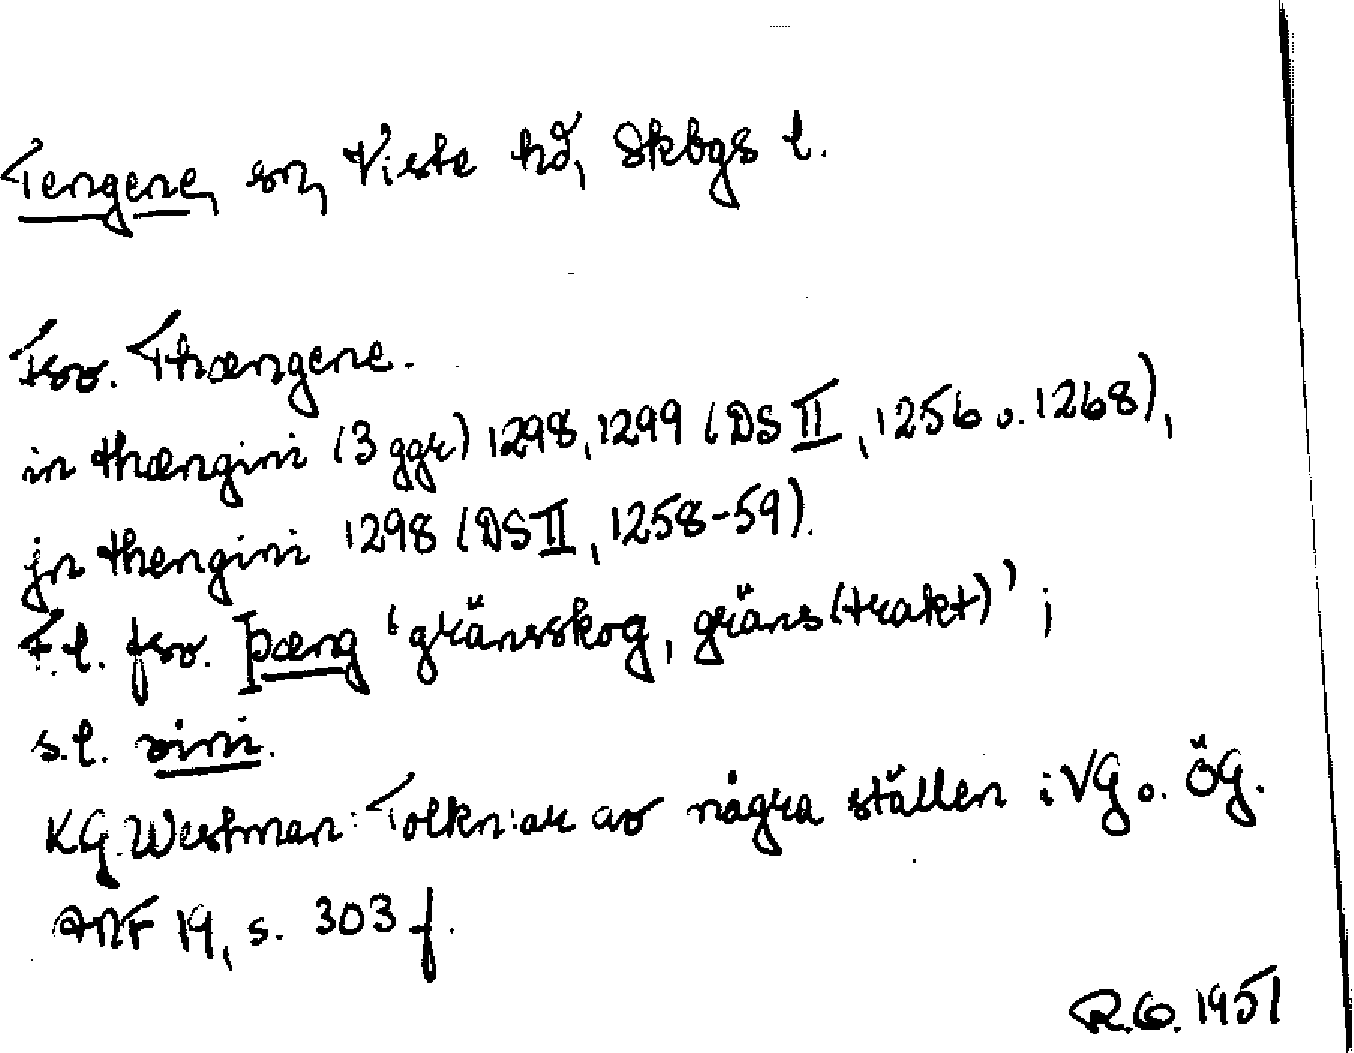 Tengene, sn, Viste hd, Skbgs l.
Fsv. Thængene.
in thængini (3 ggr) 1298, 1299 (DS II, 1256 o. 1268),
jn thengini 1298 (DS II, 1258-59).
F.l. fsv. þæng 'gränsskog, gräns(trakt)';
s.l. vini.
KG. Westman: Tolkn:ar av några ställen i VG o. ÖG.
ANF 19, s. 303 f.
R.O. 1951